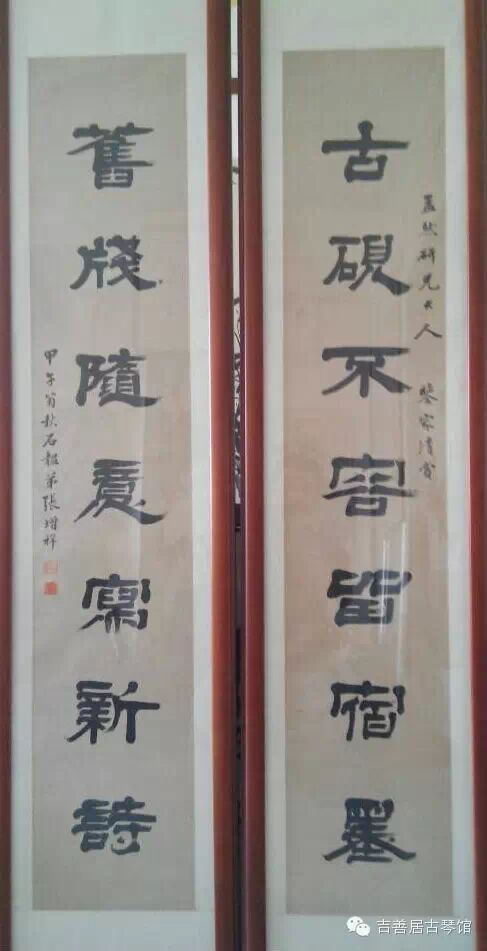 古硯不容留宿墨
兄大人
清賞
舊牋隨意寫新詩
甲午 秋石 弟張增祥
吉善居古琴馆